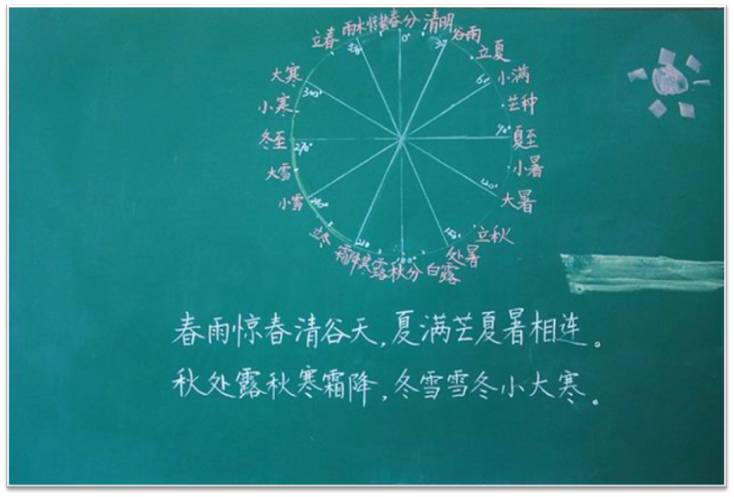 雨水 惊蛰 春分 清明
立春 谷雨
立夏
大寒 小满
小寒 芒种
冬至 270° 0° 30° 60° 90° 夏至
大雪 小暑
小雪 120° 大暑
立冬 150° 立秋
霜降 寒露 秋分 白露 处暑
210°
春雨惊春清谷天,夏满芒夏暑相连。
秋处露秋寒霜降,冬雪雪冬小大寒。